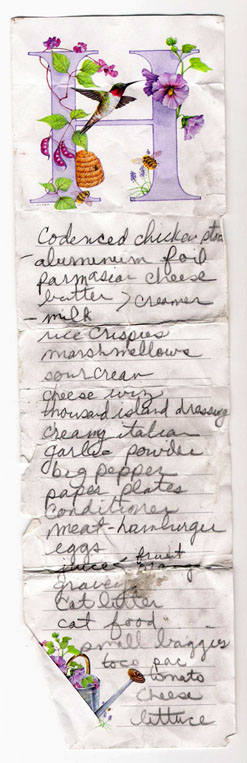 H
Codenced chicken
- aluminum foil
parmasian cheese
butter > creamer
- milk
rice crispies
marshmellows
sour cream
cheese wiz
thousand island dressing
creamy italian
garlic powder
big pepper
paper plates
conditioner
meat-hamburger
eggs
juice - fruit
gravey
cat litter
cat food
small baggies
toco pac
tomato
cheese
lettuce